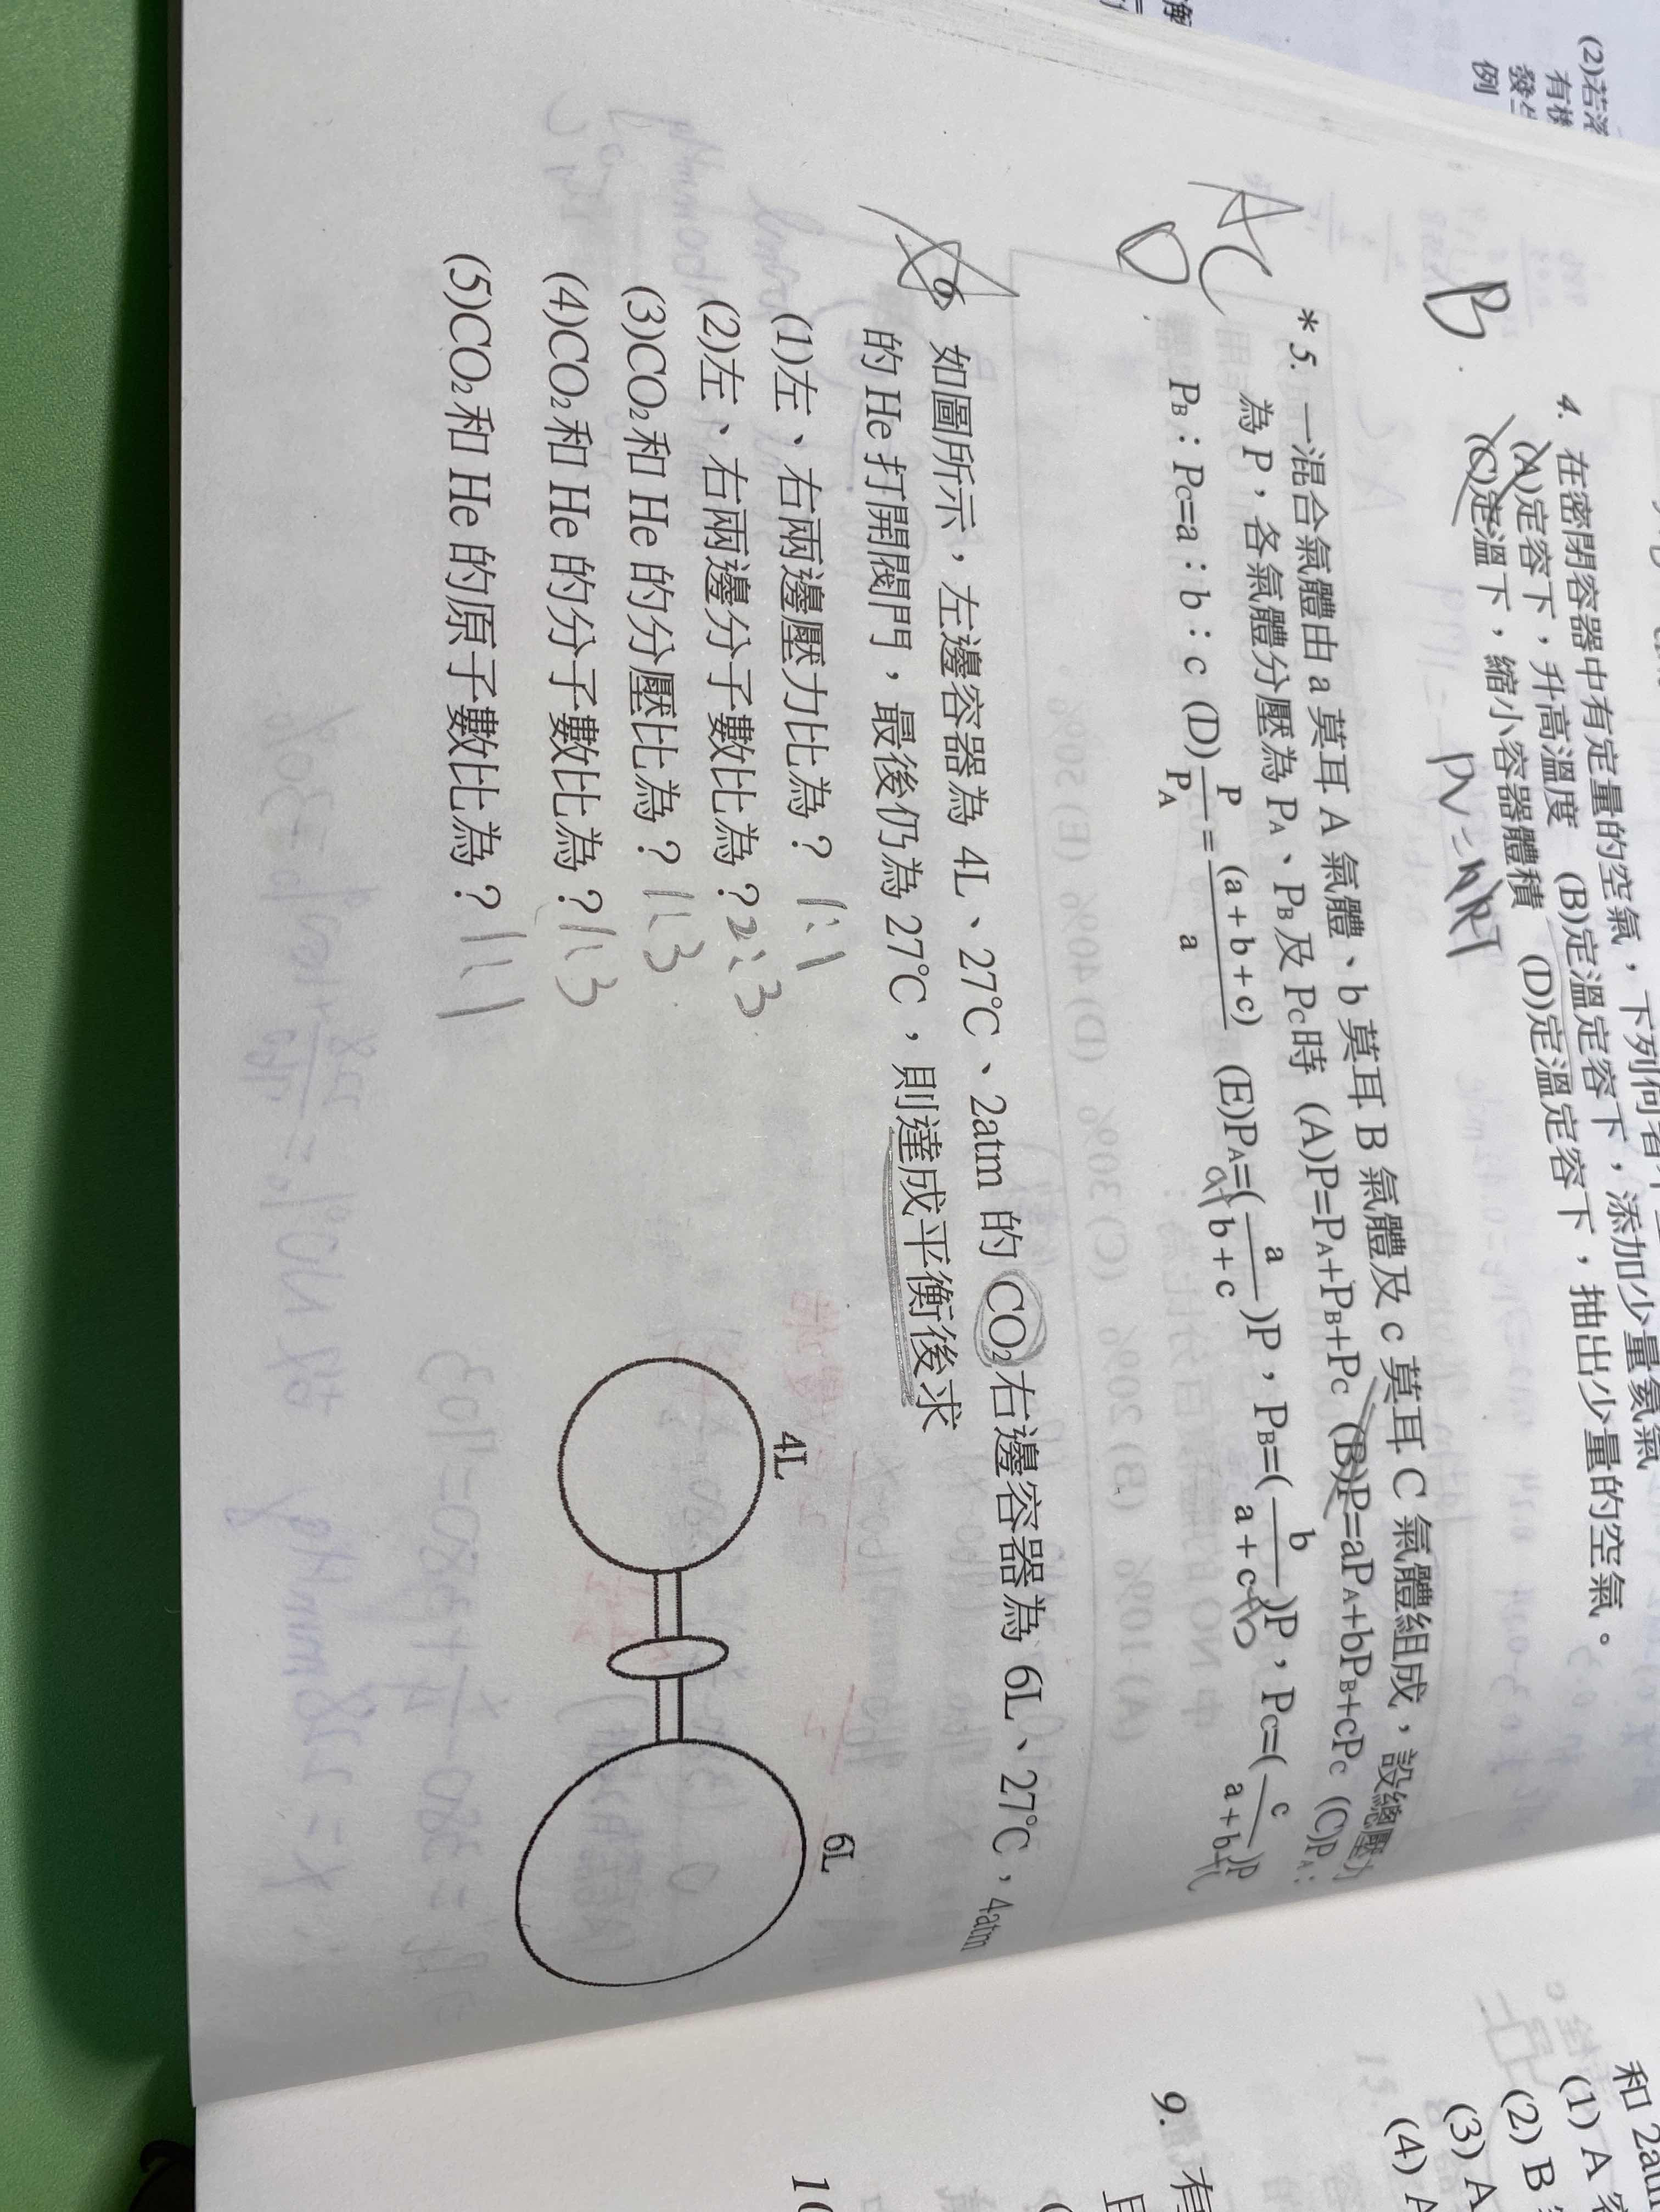 (2)若溶
有機
例
4. 在密閉容器中有定量的空氣，下列何者
(A)定容下，升高溫度 (B)定溫定容下，添加少量氨氣
(C)定溫下，縮小容器體積 (D)定溫定容下，抽出少量的空氣。
B
PV=nRT
AC
D
*5. 一混合氣體由 a 莫耳 A 氣體、b 莫耳 B 氣體及 c 莫耳 C 氣體組成，設總壓力
為 P，各氣體分壓為 PA、PB 及 PC時 (A)P=PA+PB+PC (B)P=aPA+bPB+cPC (C)PA：
PB：PC=a：b：c (D)P/PA=(a+b+c)/a (E)PA=(a/(b+c))P，PB=(b/(a+c))P，PC=(c/(a+b))P
6. 如圖所示，左邊容器為 4L、27℃、2atm 的 CO₂右邊容器為 6L、27℃，4atm
的 He 打開閥門，最後仍為 27℃，則達成平衡後求
(1)左、右兩邊壓力比為？1:1
(2)左、右兩邊分子數比為？2:3
(3)CO₂和 He 的分壓比為？1:3
(4)CO₂和 He 的分子數比為？1:3
(5)CO₂和 He 的原子數比為？1:1
4L
6L
和 2atm
(1) A
(2) B
(3) A
(4) A
9. 有